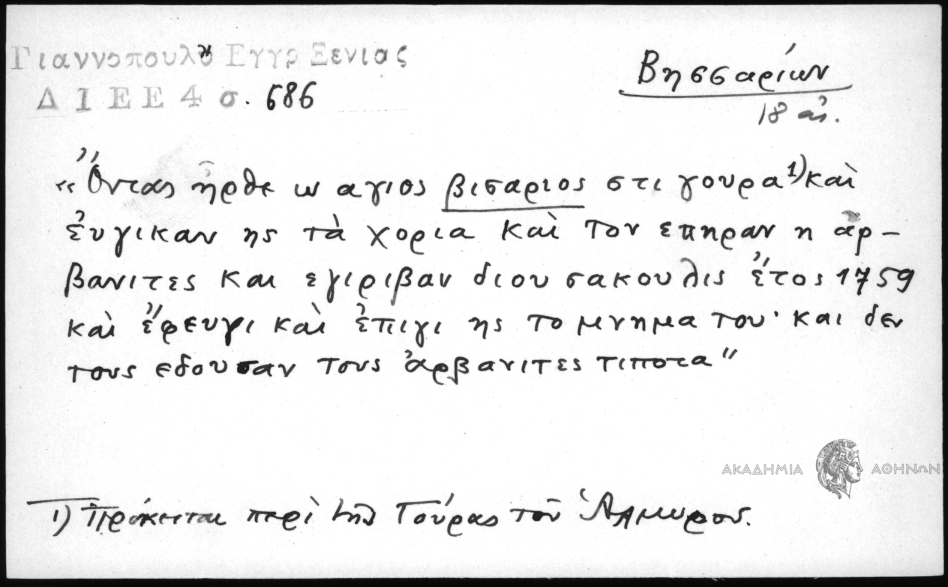 Γιαννοπούλου Εγγρ Ξενιας
ΔΙΕΕ 4 σ. 686
Βησσαρίων
18 αἰ.
«Ὄντας ἦρθε ω αγιος βισαριος στι γουρα¹⁾ καὶ
ἐυγικαν ης τὰ χορια καὶ τον επηραν η ἀρ-
βανιτες και εγιριβαν διου σακουλις ἔτος 1759
καὶ ἔφευγι καὶ ἐπιγι ης το μνημα του· και δεν
τους εδουσαν τους ἀρβανιτες τιποτα"
ΑΚΑΔΗΜΙΑ ΑΘΗΝΩΝ
1) Πρόκειται περὶ τῆς Γούρας τοῦ Ἁλμυροῦ.